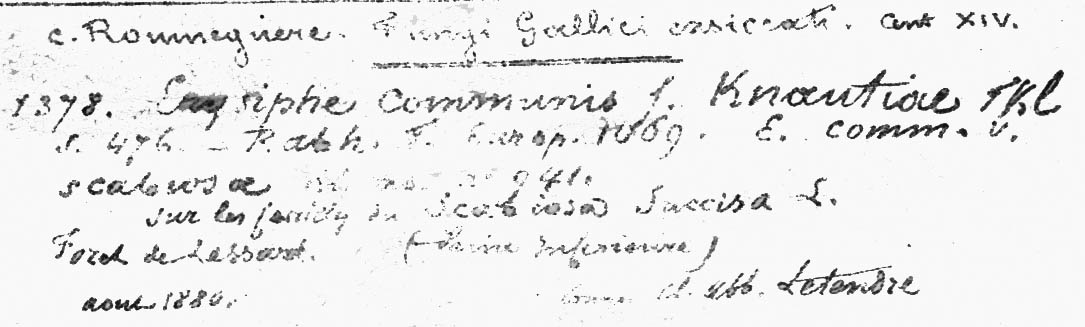 C. Roumeguere. Fungi Gallici exsiccati. Cent XIV.
1378. Erysiphe communis f. Knautiae Fkl
S. 476. - Rabh. F. Europ. E. comm. v.
scabiosæ 941.
sur les feuilles du Scabiosa Succisa L.
Foret de Lessard. (Seine Inferieure)
aout 1880. abb. Letendre